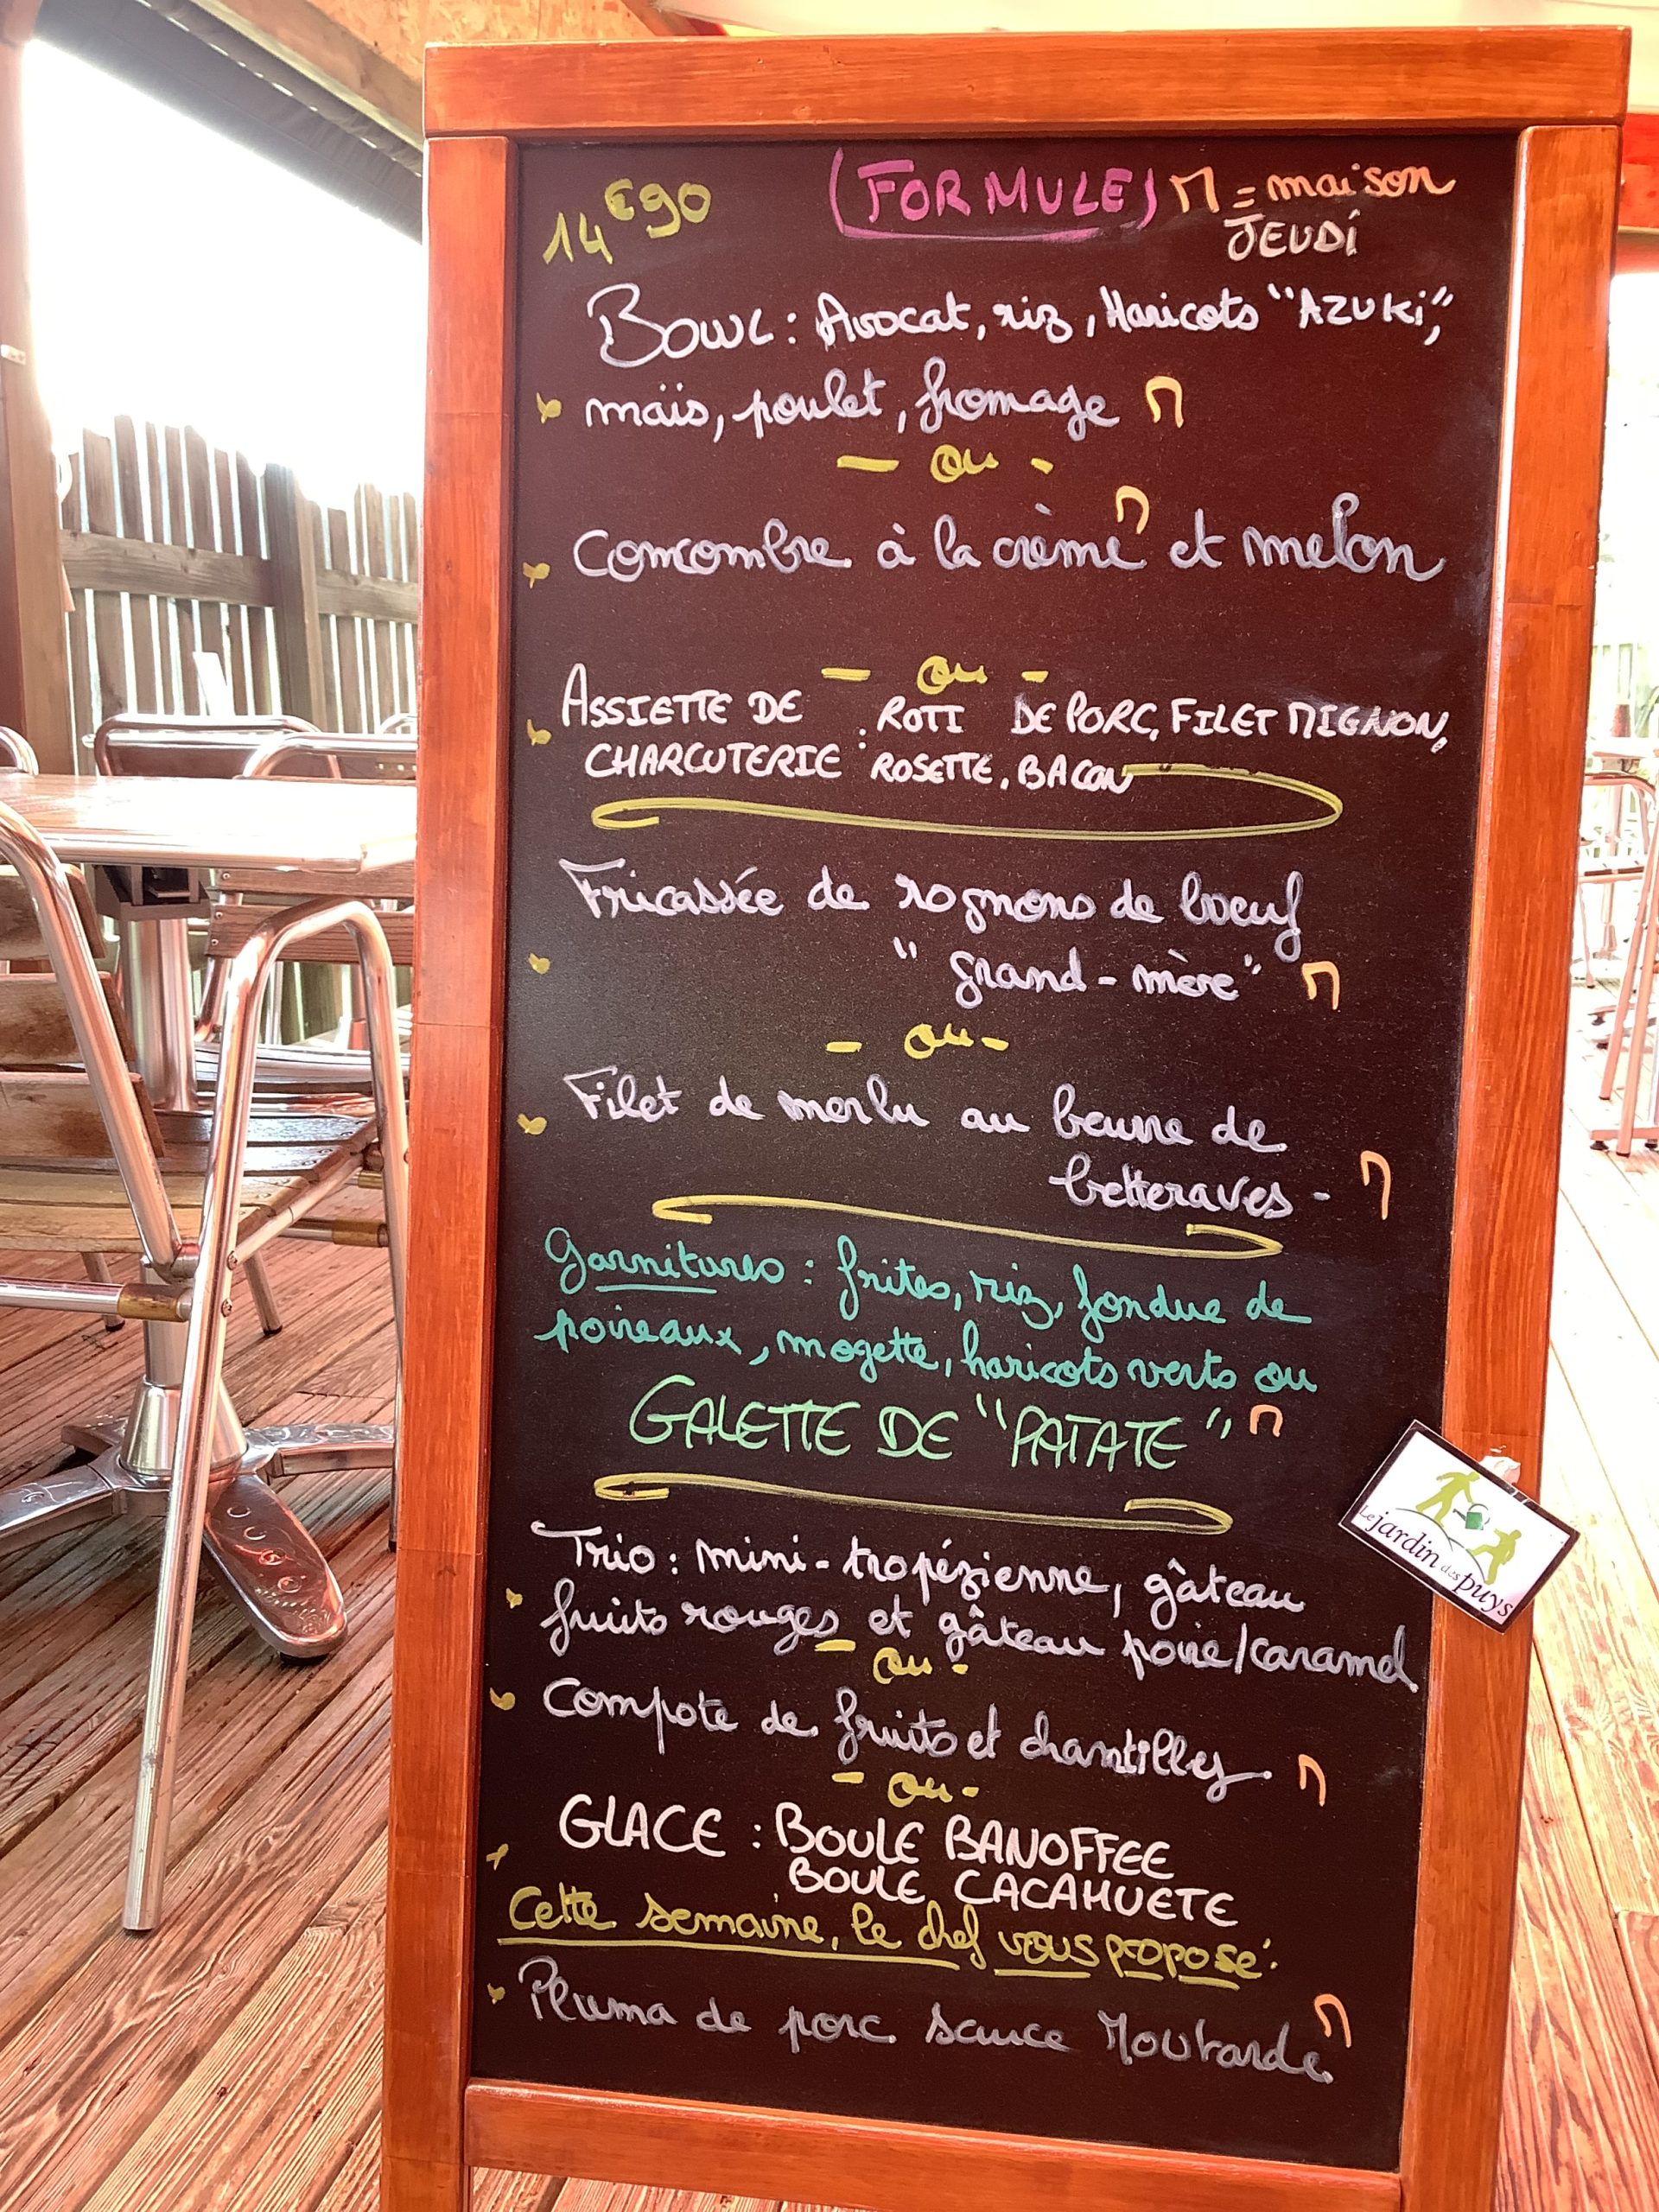 14€90 (FORMULE) M = maison
JEUDI
BOWL : Avocat, riz, Haricots "AZUKI",
maïs, poulet, fromage M
- ou -
Concombre à la crème M et melon
- ou -
ASSIETTE DE : ROTI DE PORC, FILET MIGNON,
CHARCUTERIE ROSETTE, BACON
Fricassée de rognons de boeuf
"grand-mère" M
- ou -
Filet de merlu au beurre de
betteraves - M
Garnitures : frites, riz, fondue de
poireaux, mogette, haricots verts ou
GALETTE DE "PATATE" M
Trio : mini-tropézienne, gâteau
fruits rouges et gâteau poire/caramel
- ou -
Compote de fruits et chantilly. M
- ou -
GLACE : BOULE BANOFFEE
BOULE CACAHUETE
Cette semaine, le chef vous propose :
Pluma de porc sauce Moutarde M
Le jardin des puys